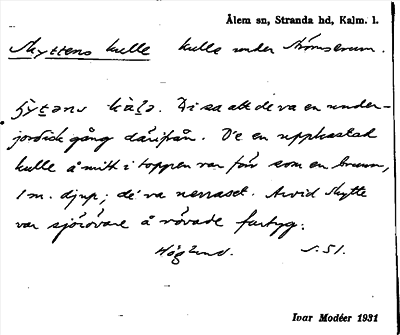 Ålem sn, Stranda hd, Kalm. l.
Skyttens kulle kulle under Strömserum.
Di sa att de va en under-
jordisk gång därifrån. De en uppkastad
kulle å mitt i toppen var som en brunn,
1 m. djup; de va nerraset. Arvid Skytte
var sjörövare å rövade fartyg.
Höglund. S. 51.
Ivar Modéer 1931